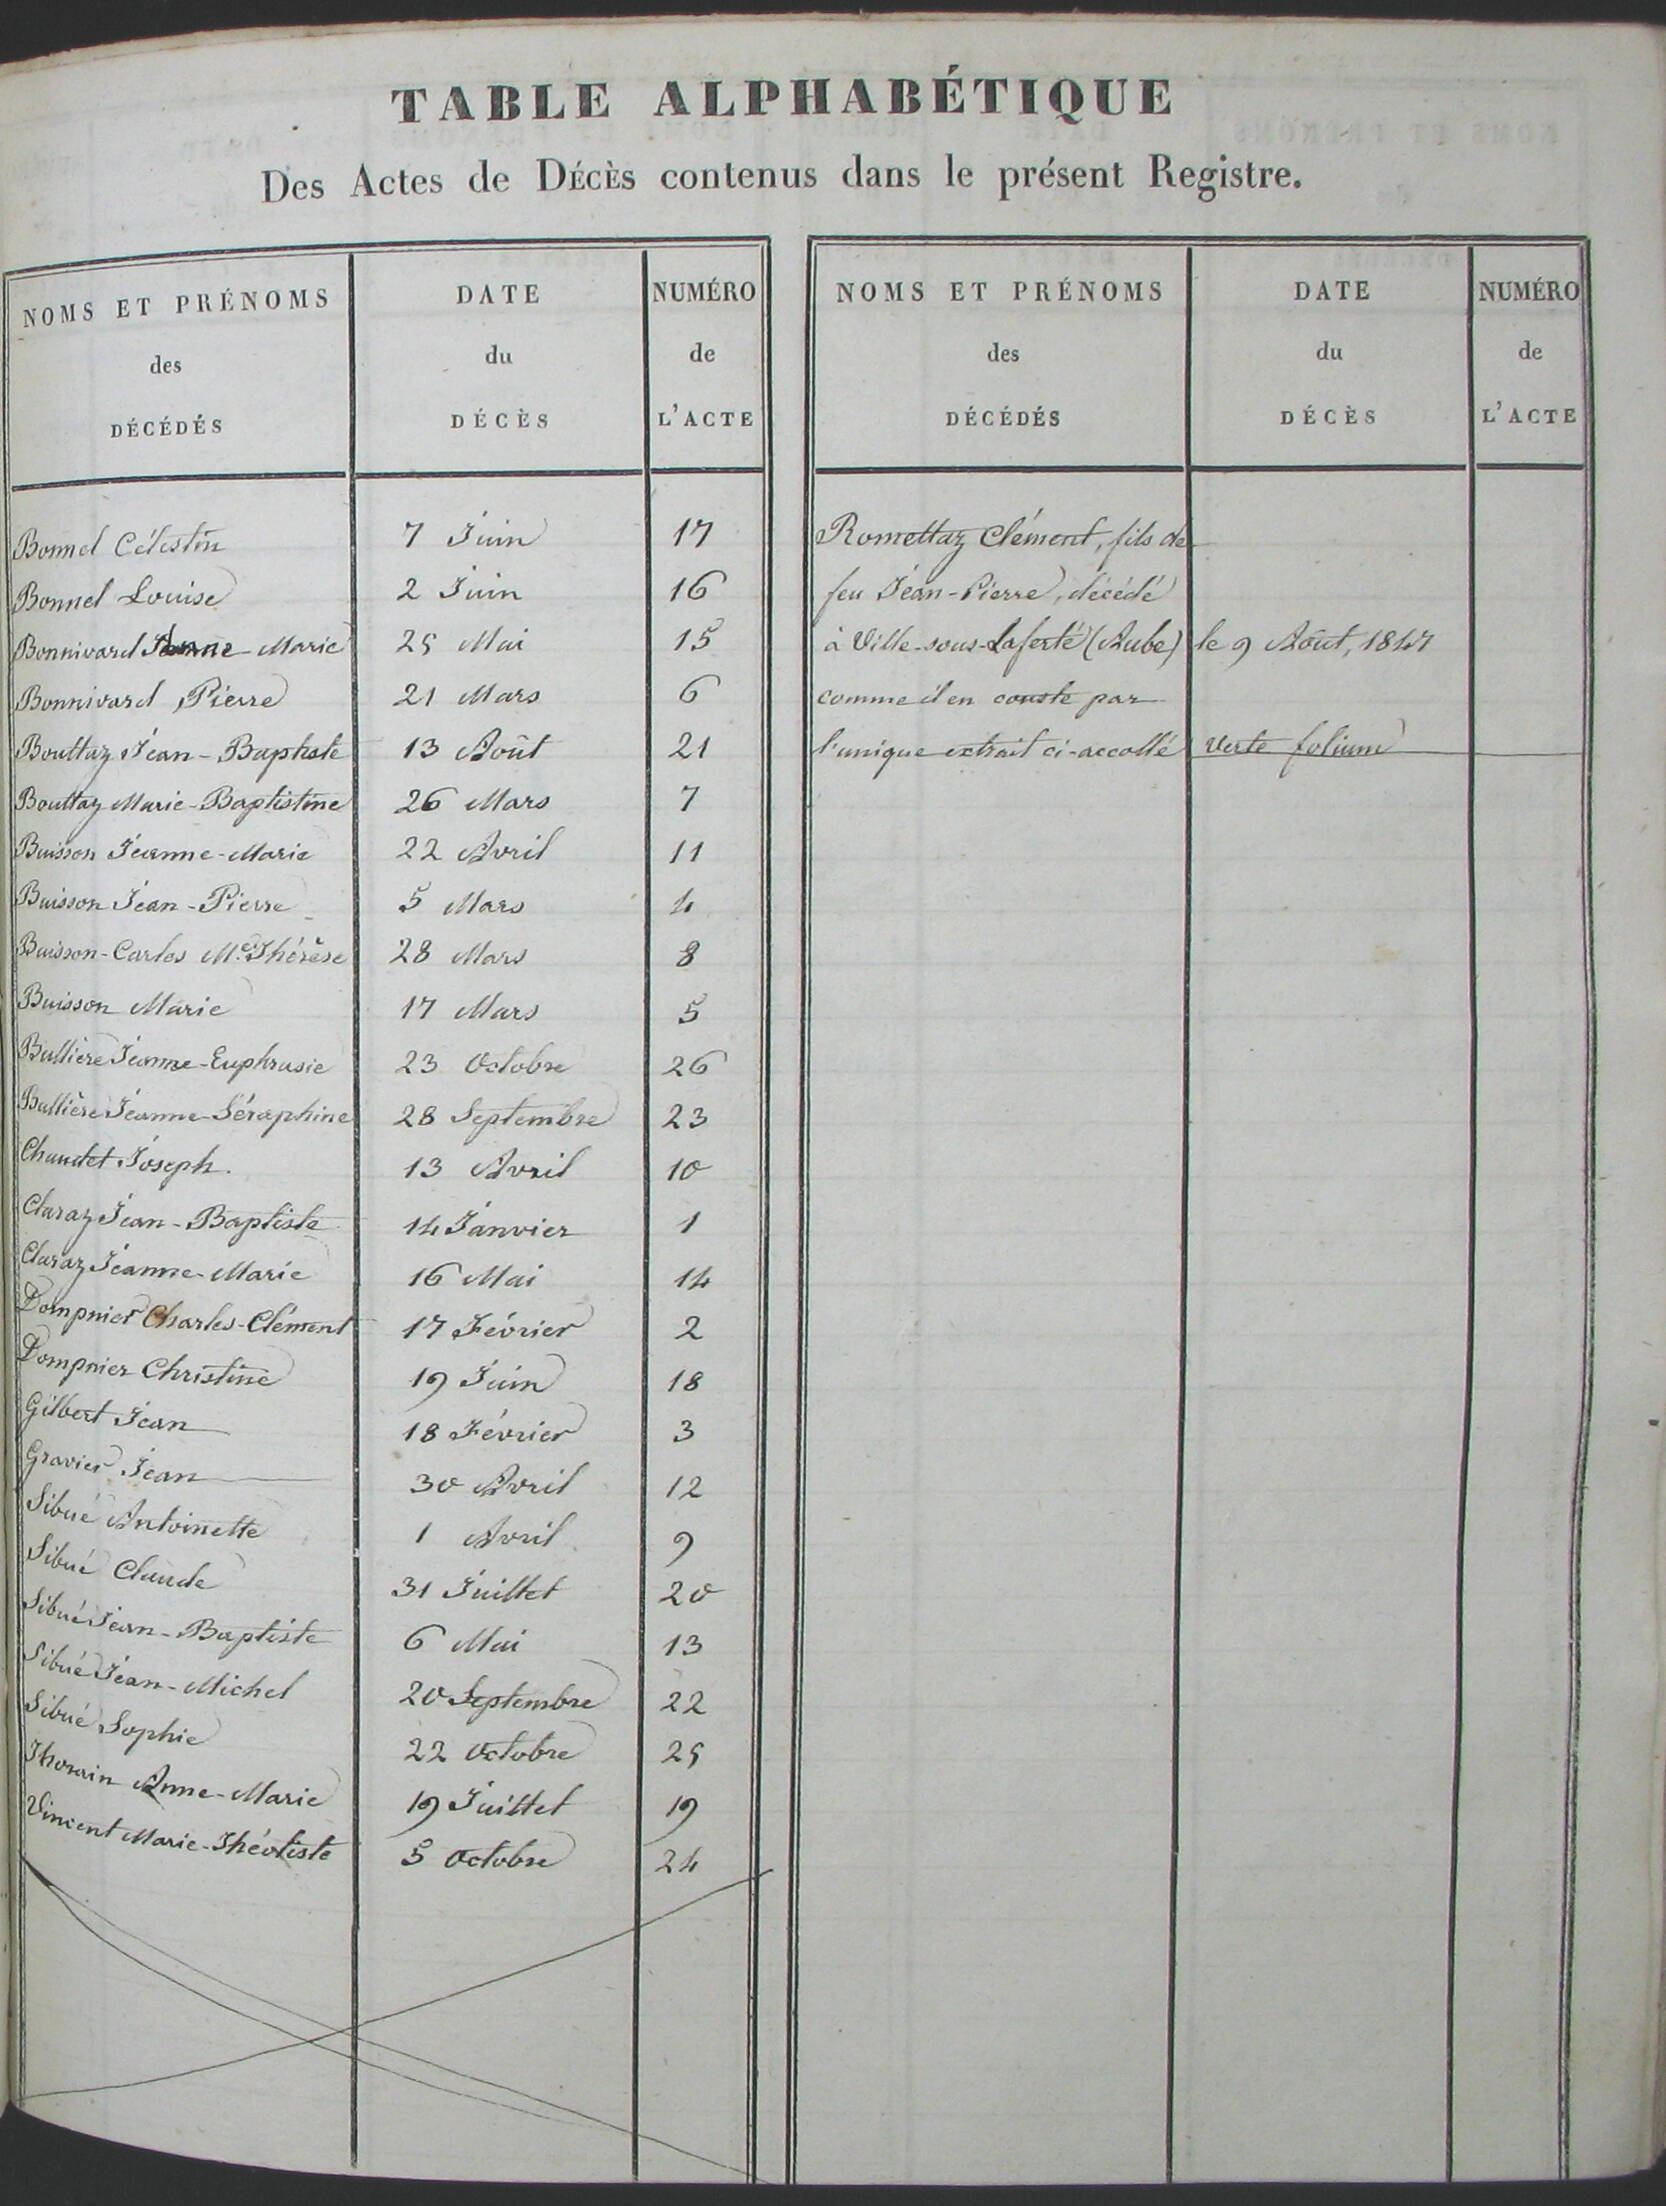 TABLE ALPHABÉTIQUE
Des Actes de DÉCÈS contenus dans le présent Registre.
NOMS ET PRÉNOMS des DÉCÉDÉS | DATE du DÉCÈS | NUMÉRO de L'ACTE
Bonnel Célestin 7 Juin 17
Bonnel Louise 2 Juin 16
Bonnivard Jeanne-Marie 25 Mai 15
Bonnivard Pierre 21 Mars 6
Bouttaz Jéan-Baptiste 13 Août 21
Bouttaz Marie-Baptistine 26 Mars 7
Buisson Jéanne-Marie 22 Avril 11
Buisson Jéan-Pierre 5 Mars 4
Buisson-Carles Me Thérèse 28 Mars 8
Buisson Marie 17 Mars 5
Bullière Jéanne-Euphrasie 23 Octobre 26
Bullière Jéanne-Séraphine 28 Septembre 23
Chaudet Joseph. 13 Avril 10
Claraz Jéan-Baptiste 14 Janvier 1
Claraz Jéanne-Marie 16 Mai 14
Dompnier Charles-Clément 17 Février 2
Dompnier Christine 19 Juin 18
Gilbert Jean 18 Février 3
Gravier Jean 30 Avril 12
Sibué Antoinette 1 Avril 9
Sibué Claude 31 Juillet 20
Sibué Jéan-Baptiste 6 Mai 13
Sibué Jéan-Michel 20 Septembre 22
Sibué Sophie 22 Octobre 25
Thorain Anne-Marie 19 Juillet 19
Vincent Marie-Théotiste 5 Octobre 24
NOMS ET PRÉNOMS des DÉCÉDÉS | DATE du DÉCÈS | NUMÉRO de L'ACTE
Romettaz Clément, fils de
feu Jéan-Pierre, décédé
à Ville-sous-Laferté (Aube) le 9 Août, 1847
comme il en conste par
l'unique extrait ci-accollé verte folium